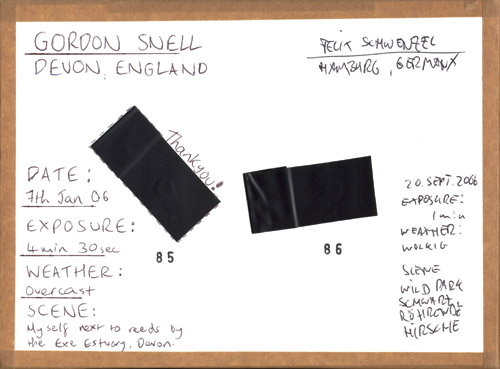 GORDON SNELL
DEVON, ENGLAND
DATE:
7th Jan 06
EXPOSURE:
4min 30sec
WEATHER:
Overcast
SCENE:
Myself next to reeds by
the Exe Estuary, Devon.
Thankyou!
85
FELIX SCHWENZEL
HAMBURG, GERMANY
86
20. SEPT. 2006
EXPOSURE:
1min
WEATHER:
WOLKIG
SCENE
WILD PARK
SCHWARZE
RÖHRENDE
HIRSCHE